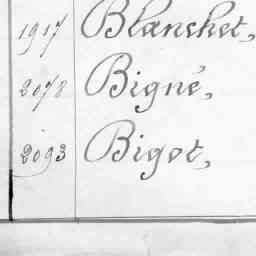 1917 Blanchet,
2078 Bigné,
2093 Bigot,